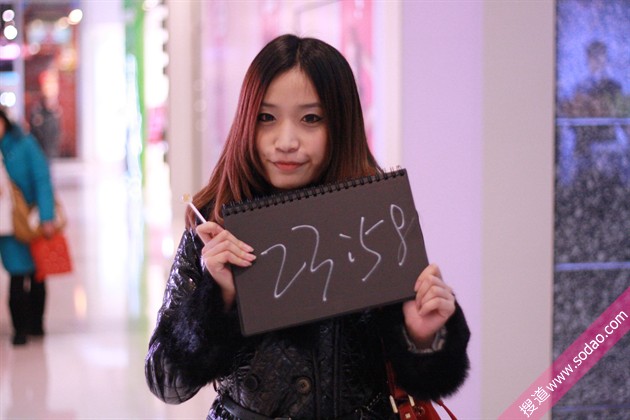 23:58
搜道www.sodao.com